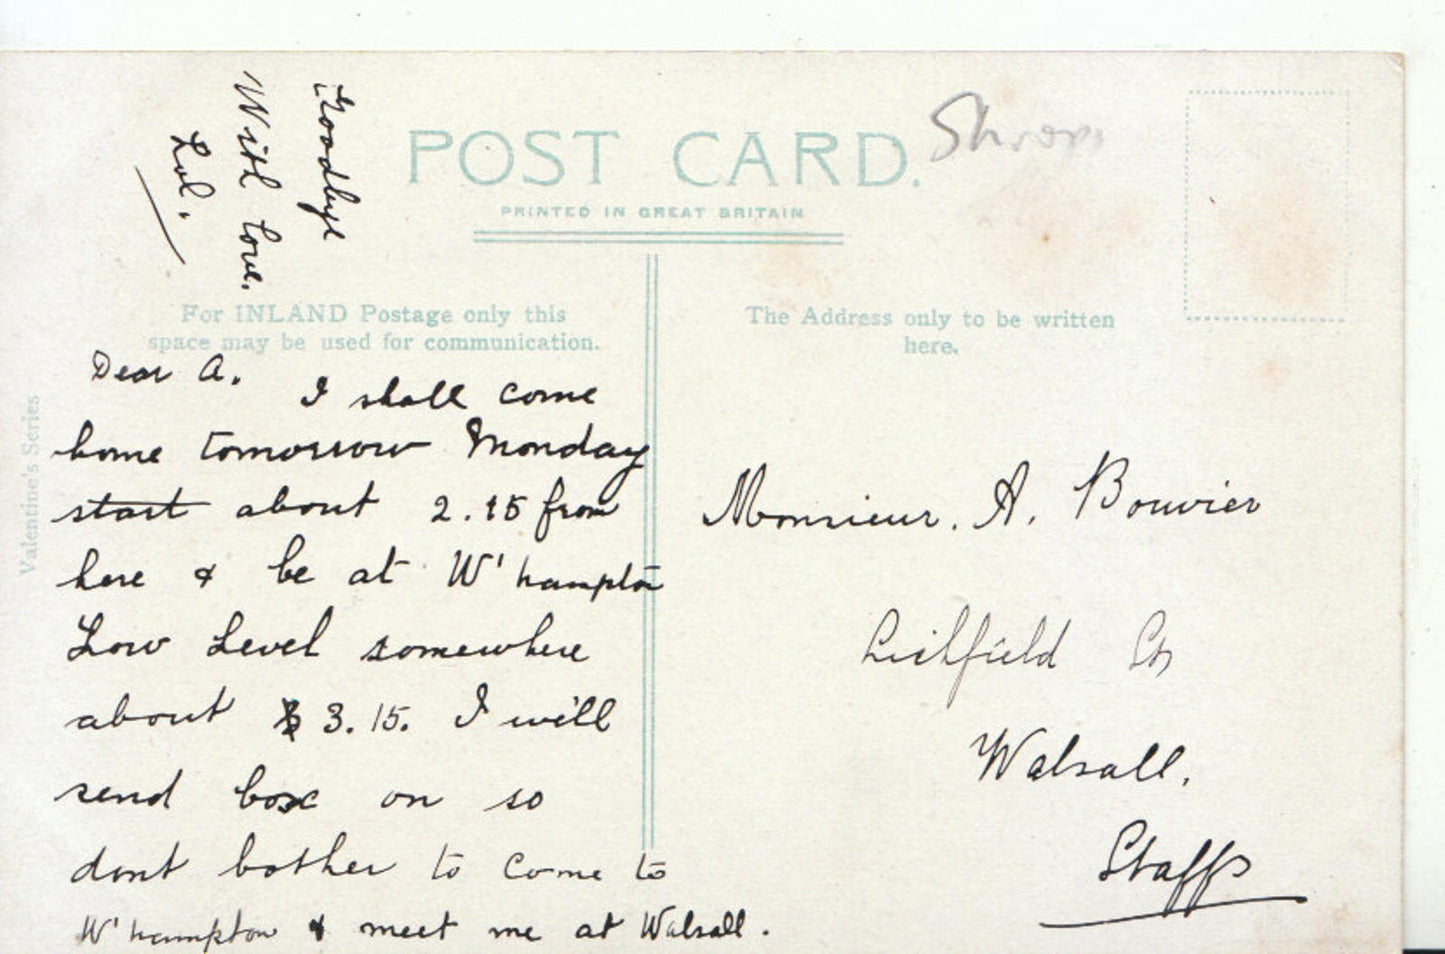 POST CARD.
PRINTED IN GREAT BRITAIN
Shrops
For INLAND Postage only this
space may be used for communication.
The Address only to be written
here.
Valentine's Series
Dear A. I shall come
home tomorrow Monday
start about 2.15 from
here & be at W'hampton
Low Level somewhere
about 3.15. I will
send box on so
dont bother to come to
W'hampton & meet me at Walsall.
Goodbye
With love.
Lol.
Monsieur. A. Bouvier
Lichfield St
Walsall.
Staffs